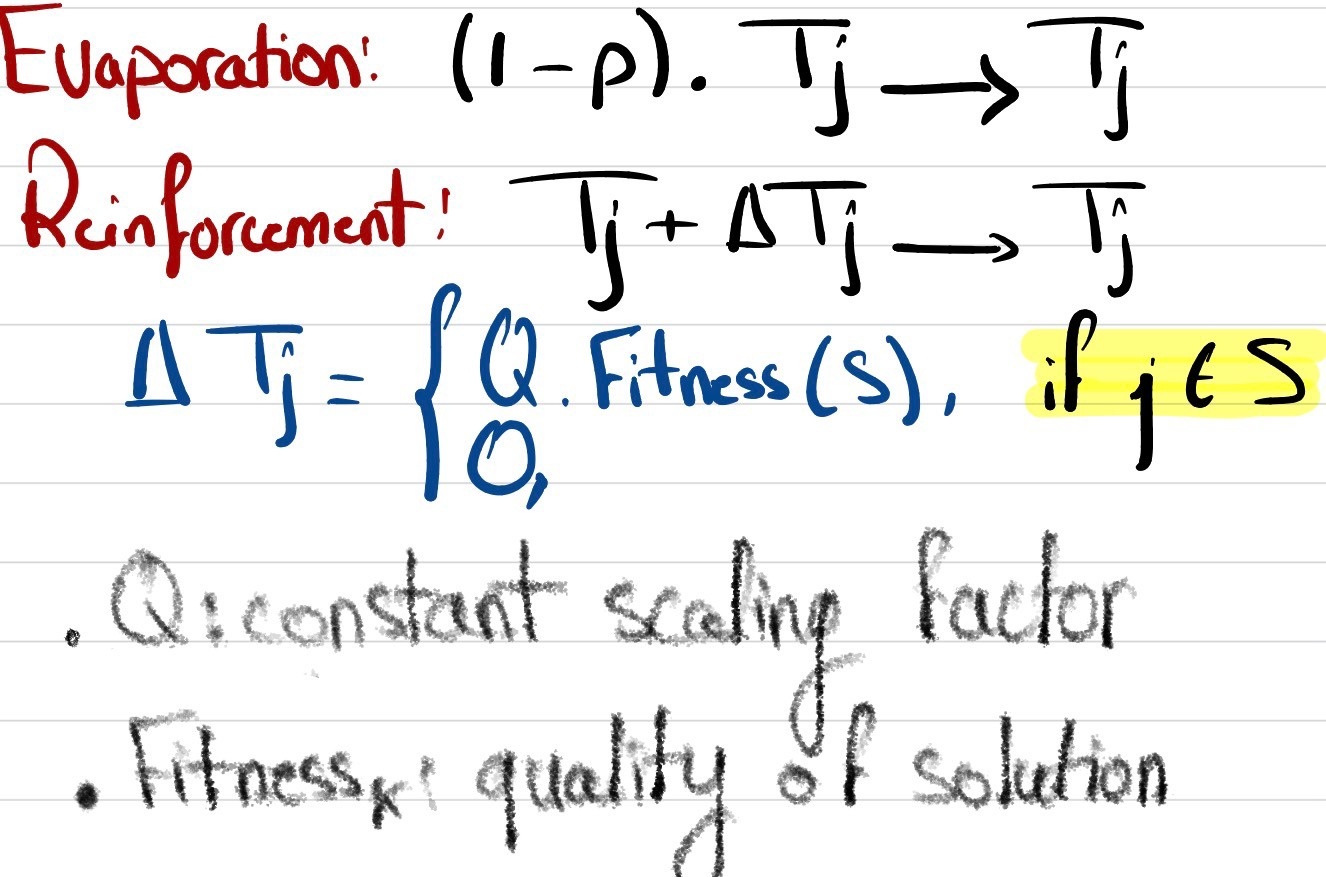 Evaporation: (1-ρ). Tj → Tj
Reinforcement: Tj + ΔTj → Tj
ΔTj = { Q . Fitness(S), if j ∈ S
0,
. Q: constant scaling factor
. Fitnessₓ: quality of solution